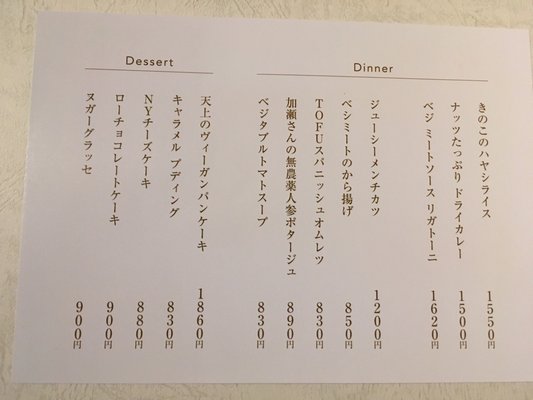 Dinner
きのこのハヤシライス 1550円
ナッツたっぷり ドライカレー 1500円
ベジ ミートソース リガトーニ 1620円
ジューシーメンチカツ 1200円
ベシミートのから揚げ 850円
TOFUスパニッシュオムレツ 830円
加瀬さんの無農薬人参ポタージュ 890円
ベジタブルトマトスープ 830円
Dessert
天上のヴィーガンパンケーキ 1860円
キャラメル プディング 830円
NYチーズケーキ 880円
ローチョコレートケーキ 900円
ヌガーグラッセ 900円